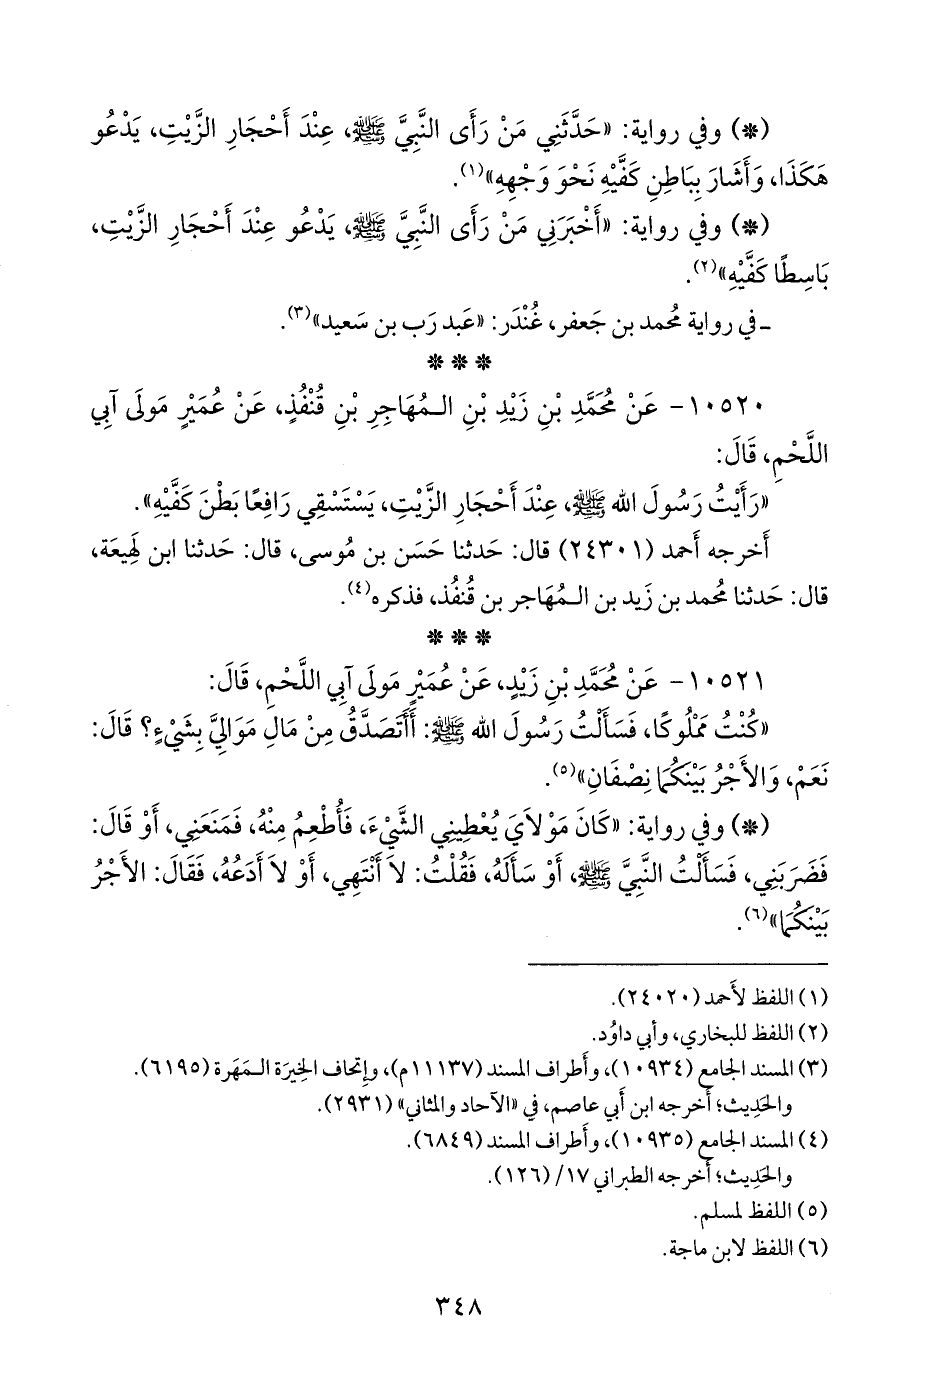 (*) وفي رواية: «حَدَّثَنِي مَنْ رَأَى النَّبِيَّ ﷺ، عِنْدَ أَحْجَارِ الزَّيْتِ، يَدْعُو
هَكَذَا، وَأَشَارَ بِبَاطِنِ كَفَّيْهِ نَحْوَ وَجْهِهِ»(١).
(*) وفي رواية: «أَخْبَرَنِي مَنْ رَأَى النَّبِيَّ ﷺ، يَدْعُو عِنْدَ أَحْجَارِ الزَّيْتِ،
بَاسِطًا كَفَّيْهِ»(٢).
ـ في رواية مُحمد بن جَعفر، غُنْدَر: «عَبد رَب بن سَعيد»(٣).
* * *
١٠٥٢٠- عَنْ مُحَمَّدِ بْنِ زَيْدِ بْنِ الـمُهَاجِرِ بْنِ قُنْفُذٍ، عَنْ عُمَيْرٍ مَولَى آبِي
اللَّحْمِ، قَالَ:
«رَأَيْتُ رَسُولَ الله ﷺ، عِنْدَ أَحْجَارِ الزَّيْتِ، يَسْتَسْقِي رَافِعًا بَطْنَ كَفَّيْهِ».
أَخرجه أَحمد (٢٤٣٠١) قال: حَدثنا حَسَن بن مُوسى، قال: حَدثنا ابن لَهِيعَة،
قال: حَدثنا مُحمد بن زَيد بن الـمُهَاجر بن قُنفُذ، فذكره(٤).
* * *
١٠٥٢١- عَنْ مُحَمَّدِ بْنِ زَيْدٍ، عَنْ عُمَيْرٍ مَولَى آبِي اللَّحْمِ، قَالَ:
«كُنْتُ مَمْلُوكًا، فَسَأَلْتُ رَسُولَ الله ﷺ: أَأَتَصَدَّقُ مِنْ مَالِ مَوَالِيَّ بِشَيْءٍ؟ قَالَ:
نَعَمْ، وَالأَجْرُ بَيْنَكُمَا نِصْفَانِ»(٥).
(*) وفي رواية: «كَانَ مَوْلاَيَ يُعْطِينِي الشَّيْءَ، فَأُطْعِمُ مِنْهُ، فَمَنَعَنِي، أَوْ قَالَ:
فَضَرَبَنِي، فَسَأَلْتُ النَّبِيَّ ﷺ، أَوْ سَأَلَهُ، فَقُلْتُ: لاَ أَنْتَهِي، أَوْ لاَ أَدَعُهُ، فَقَالَ: الأَجْرُ
بَيْنَكُمَا»(٦).
(١) اللفظ لأَحمد (٢٤٠٢٠).
(٢) اللفظ للبخاري، وأَبي داوُد.
(٣) المسند الجامع (١٠٩٣٤)، وأَطراف المسند (١١١٣٧م)، وإِتحاف الخِيرَة الـمَهَرة (٦١٩٥).
والحَدِيث؛ أَخرجه ابن أَبي عاصم، في «الآحاد والمثاني» (٢٩٣١).
(٤) المسند الجامع (١٠٩٣٥)، وأَطراف المسند (٦٨٤٩).
والحَدِيث؛ أَخرجه الطبراني ١٧/ (١٢٦).
(٥) اللفظ لمسلم.
(٦) اللفظ لابن ماجة.
٣٤٨